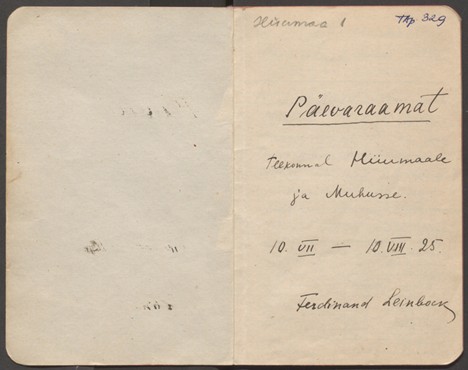 Hiiumaa 1 TAp 329
Päevaraamat
Teekonnal Hiiumaale
ja Muhusse.
10. VII — 10. VIII. 25.
Ferdinand Leinbock